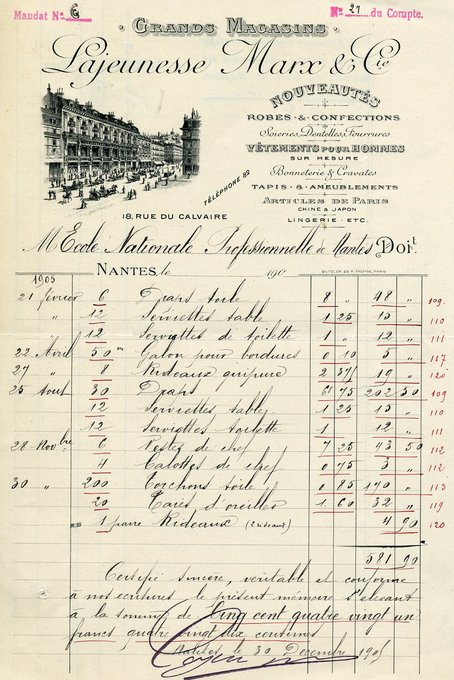 Mandat Nº 6
Nº 27 du Compte.
GRANDS MAGASINS
Lajeunesse Marx & Cie
NOUVEAUTÉS
ROBES & CONFECTIONS
Soieries, Dentelles, Fourrures
VÊTEMENTS POUR HOMMES
SUR MESURE
Bonneterie & Cravates
TAPIS & AMEUBLEMENTS
ARTICLES DE PARIS
CHINE & JAPON
LINGERIE - ETC.
TÉLÉPHONE 89
18, RUE DU CALVAIRE
M Ecole Nationale Professionnelle de Nantes Doit.
NANTES, le 190
1905
21 février 6 Draps toile 8 " 48 " 109
" 12 Serviettes table 1 25 15 " 110
12 Serviettes de toilette 1 " 12 " 111
22 Avril 50 m Galon pour bordures 0 10 5 " 117
27 " 8 Rideaux guipure 2 37/ 19 " 120
25 Aout 30 Draps 6 75 202 50 109
12 Serviettes table 1 25 15 " 110
12 Serviettes toilette 1 12 " 111
28 Novbre 6 Vestes de chef 7 25 43 50 112
4 Calottes de chef 0 75 3 " 112
30 " 200 Torchons toile 0 85 170 " 113
20 Taies d'oreiller 1 60 32 " 119
" 1 paire Rideaux (2 rideaux) 4 90 120
581 90
Certifié sincère, véritable et conforme
à nos ecritures le présent mémoire s'élevant
à la somme de Cinq cent quatre vingt un
francs quatre vingt dix centimes
Nantes le 30 Décembre 1905